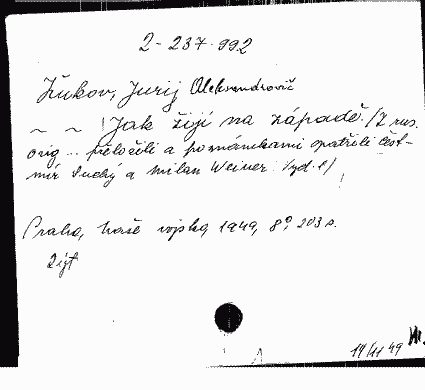 2-237.992
Žukov, Jurij Aleksandrovič
~ ~ : Jak žijí na západě. /Z rus.
orig... přeložili a poznámkami opatřili Čest-
mír Suchý a Milan Weiner. Vyd. 1/
Praha, Naše vojsko, 1949, 8°, 203 s.
14/11 49